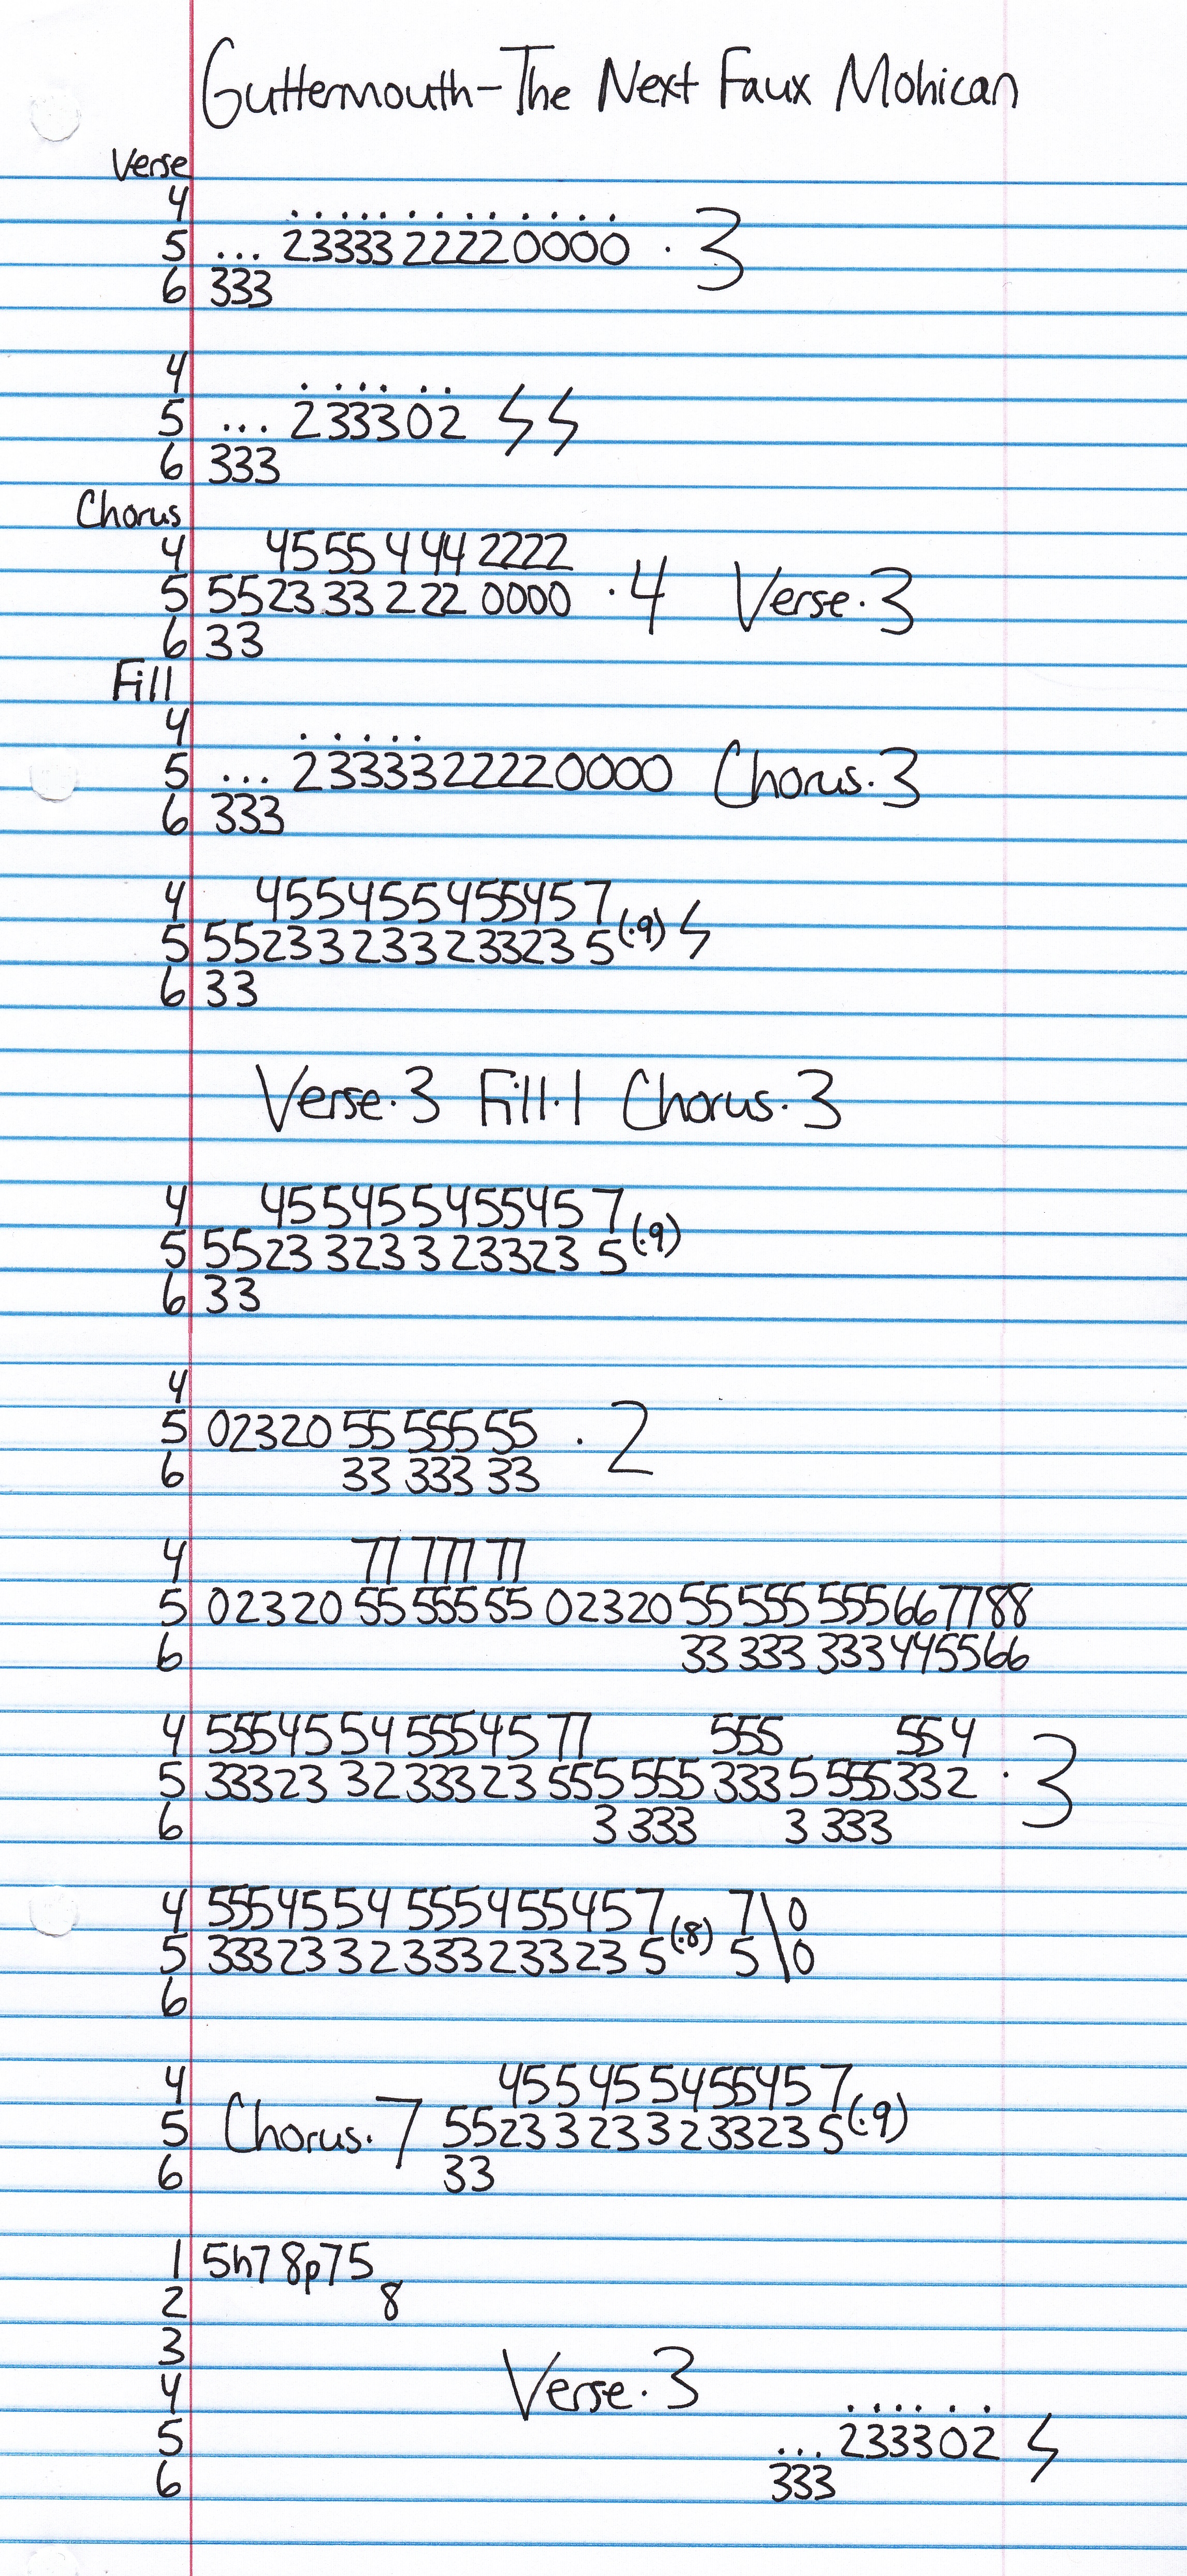 Guttermouth-The Next Faux Mohican
Verse
4 . . . . . . . . . . . . .
5 ... 2333322220000 · 3
6 333
4 . . . . . .
5 ... 233302 ϟ ϟ
6 333
Chorus
4 4555 4 44 2222
5 552333 2 22 0000 · 4 Verse · 3
6 33
Fill
4 . . . . .
5 ... 2333322220000 Chorus · 3
6 333
4 455455455457
5 55233233233235 (·9) ϟ
6 33
Verse · 3 Fill · 1 Chorus · 3
4 455455455457
5 55233233233235 (·9)
6 33
4
5 02320 55 555 55 · 2
6 33 333 33
4 77 777 77
5 02320 55 555 55 02320 55 555 555667788
6 33 333 333445566
4 55545 54 55545 77 555 554
5 33323 32 33323 555 555 333 5 555332 · 3
6 3 333 3 333
4 55545 54 555455457 (·8) 7\0
5 33323 32 333233235 5\0
6
4 455455455457
5 Chorus · 7 55233233233235 (·9)
6 33
1 5h7 8p75
2 8
3
4 Verse · 3 . . . . . .
5 ... 233302 ϟ
6 333